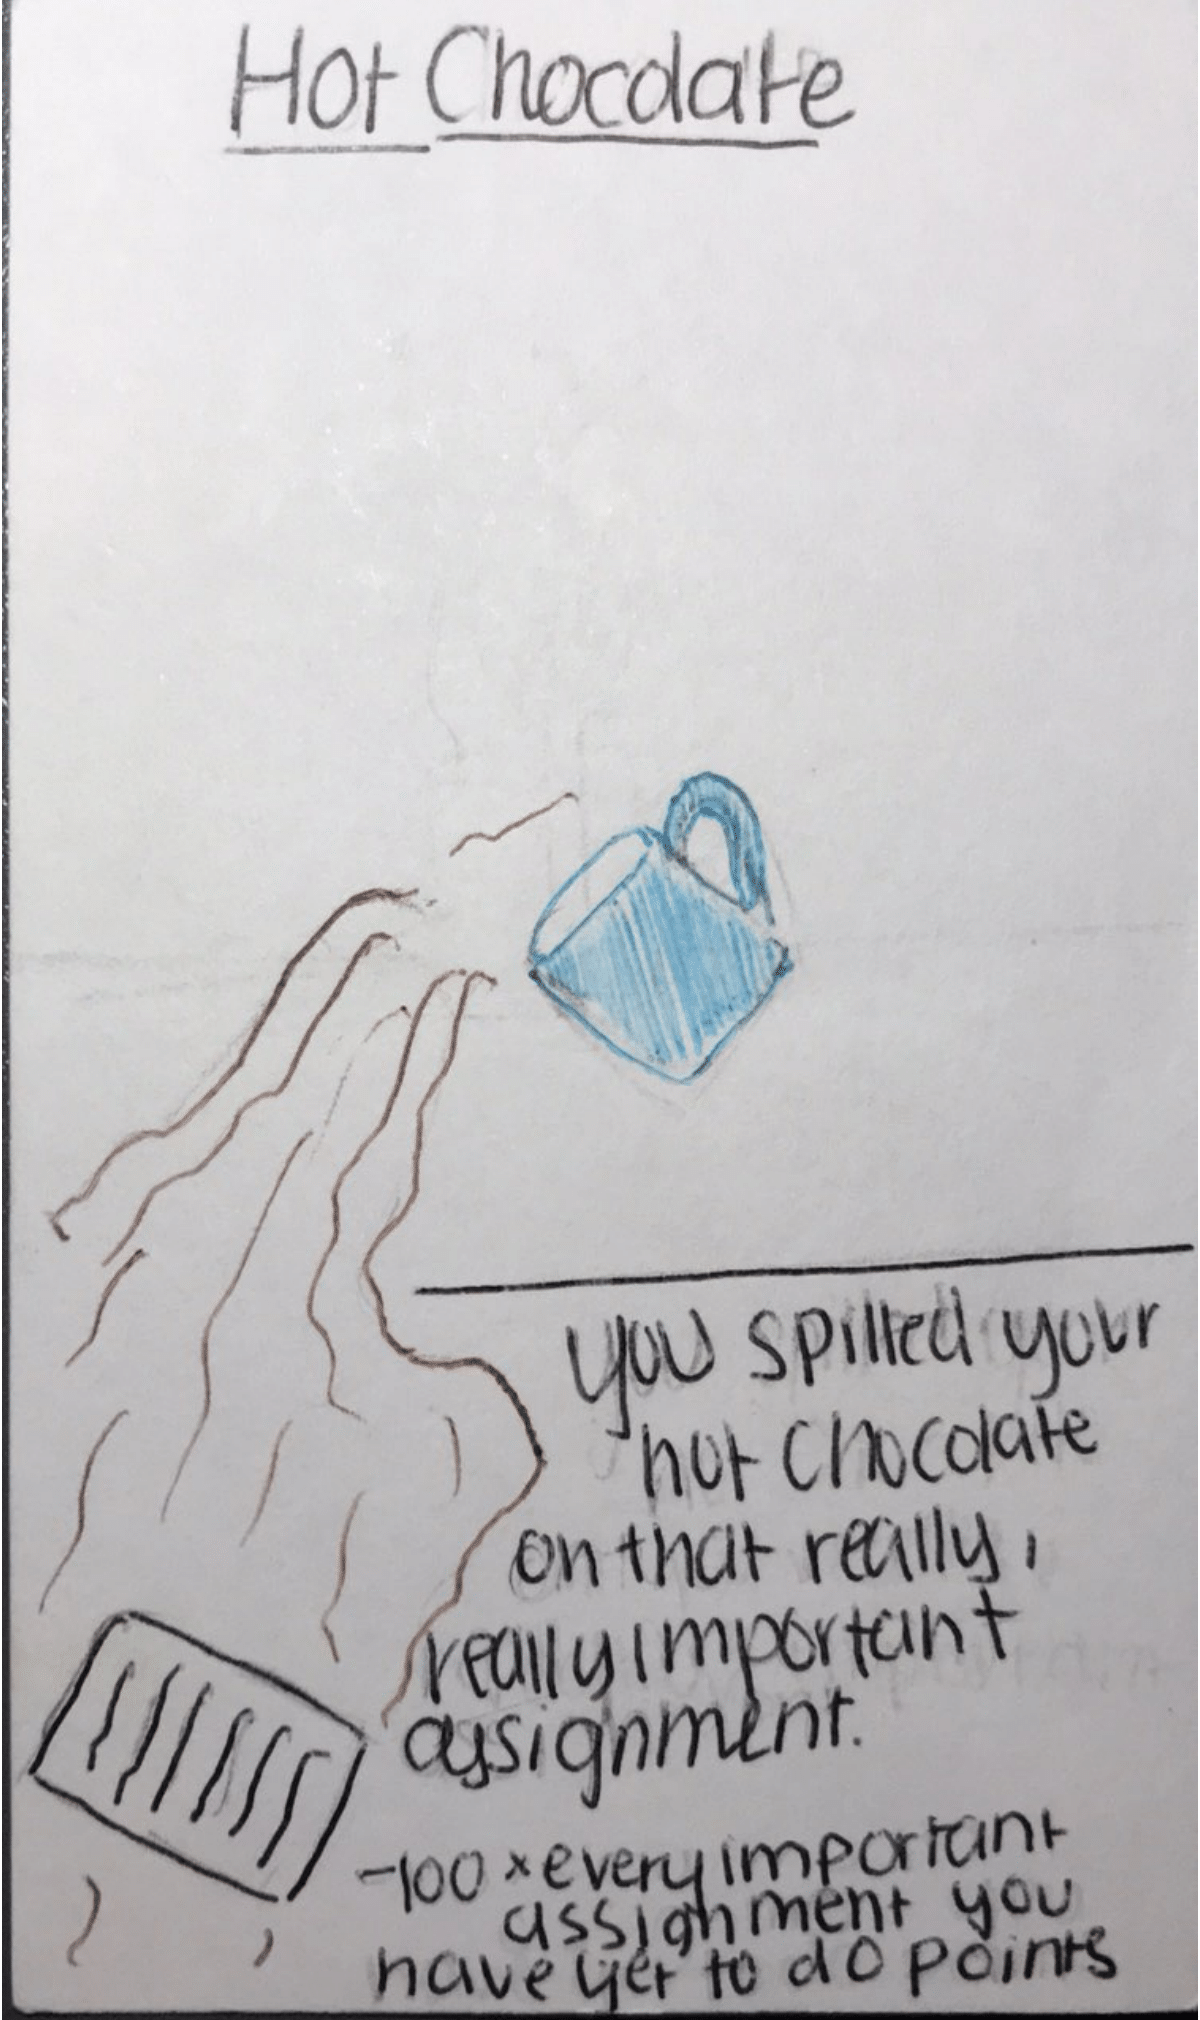 Hot Chocolate
you spilled your
hot chocolate
on that really,
really important
assignment.
-100 × every important
assignment you
have yet to do points